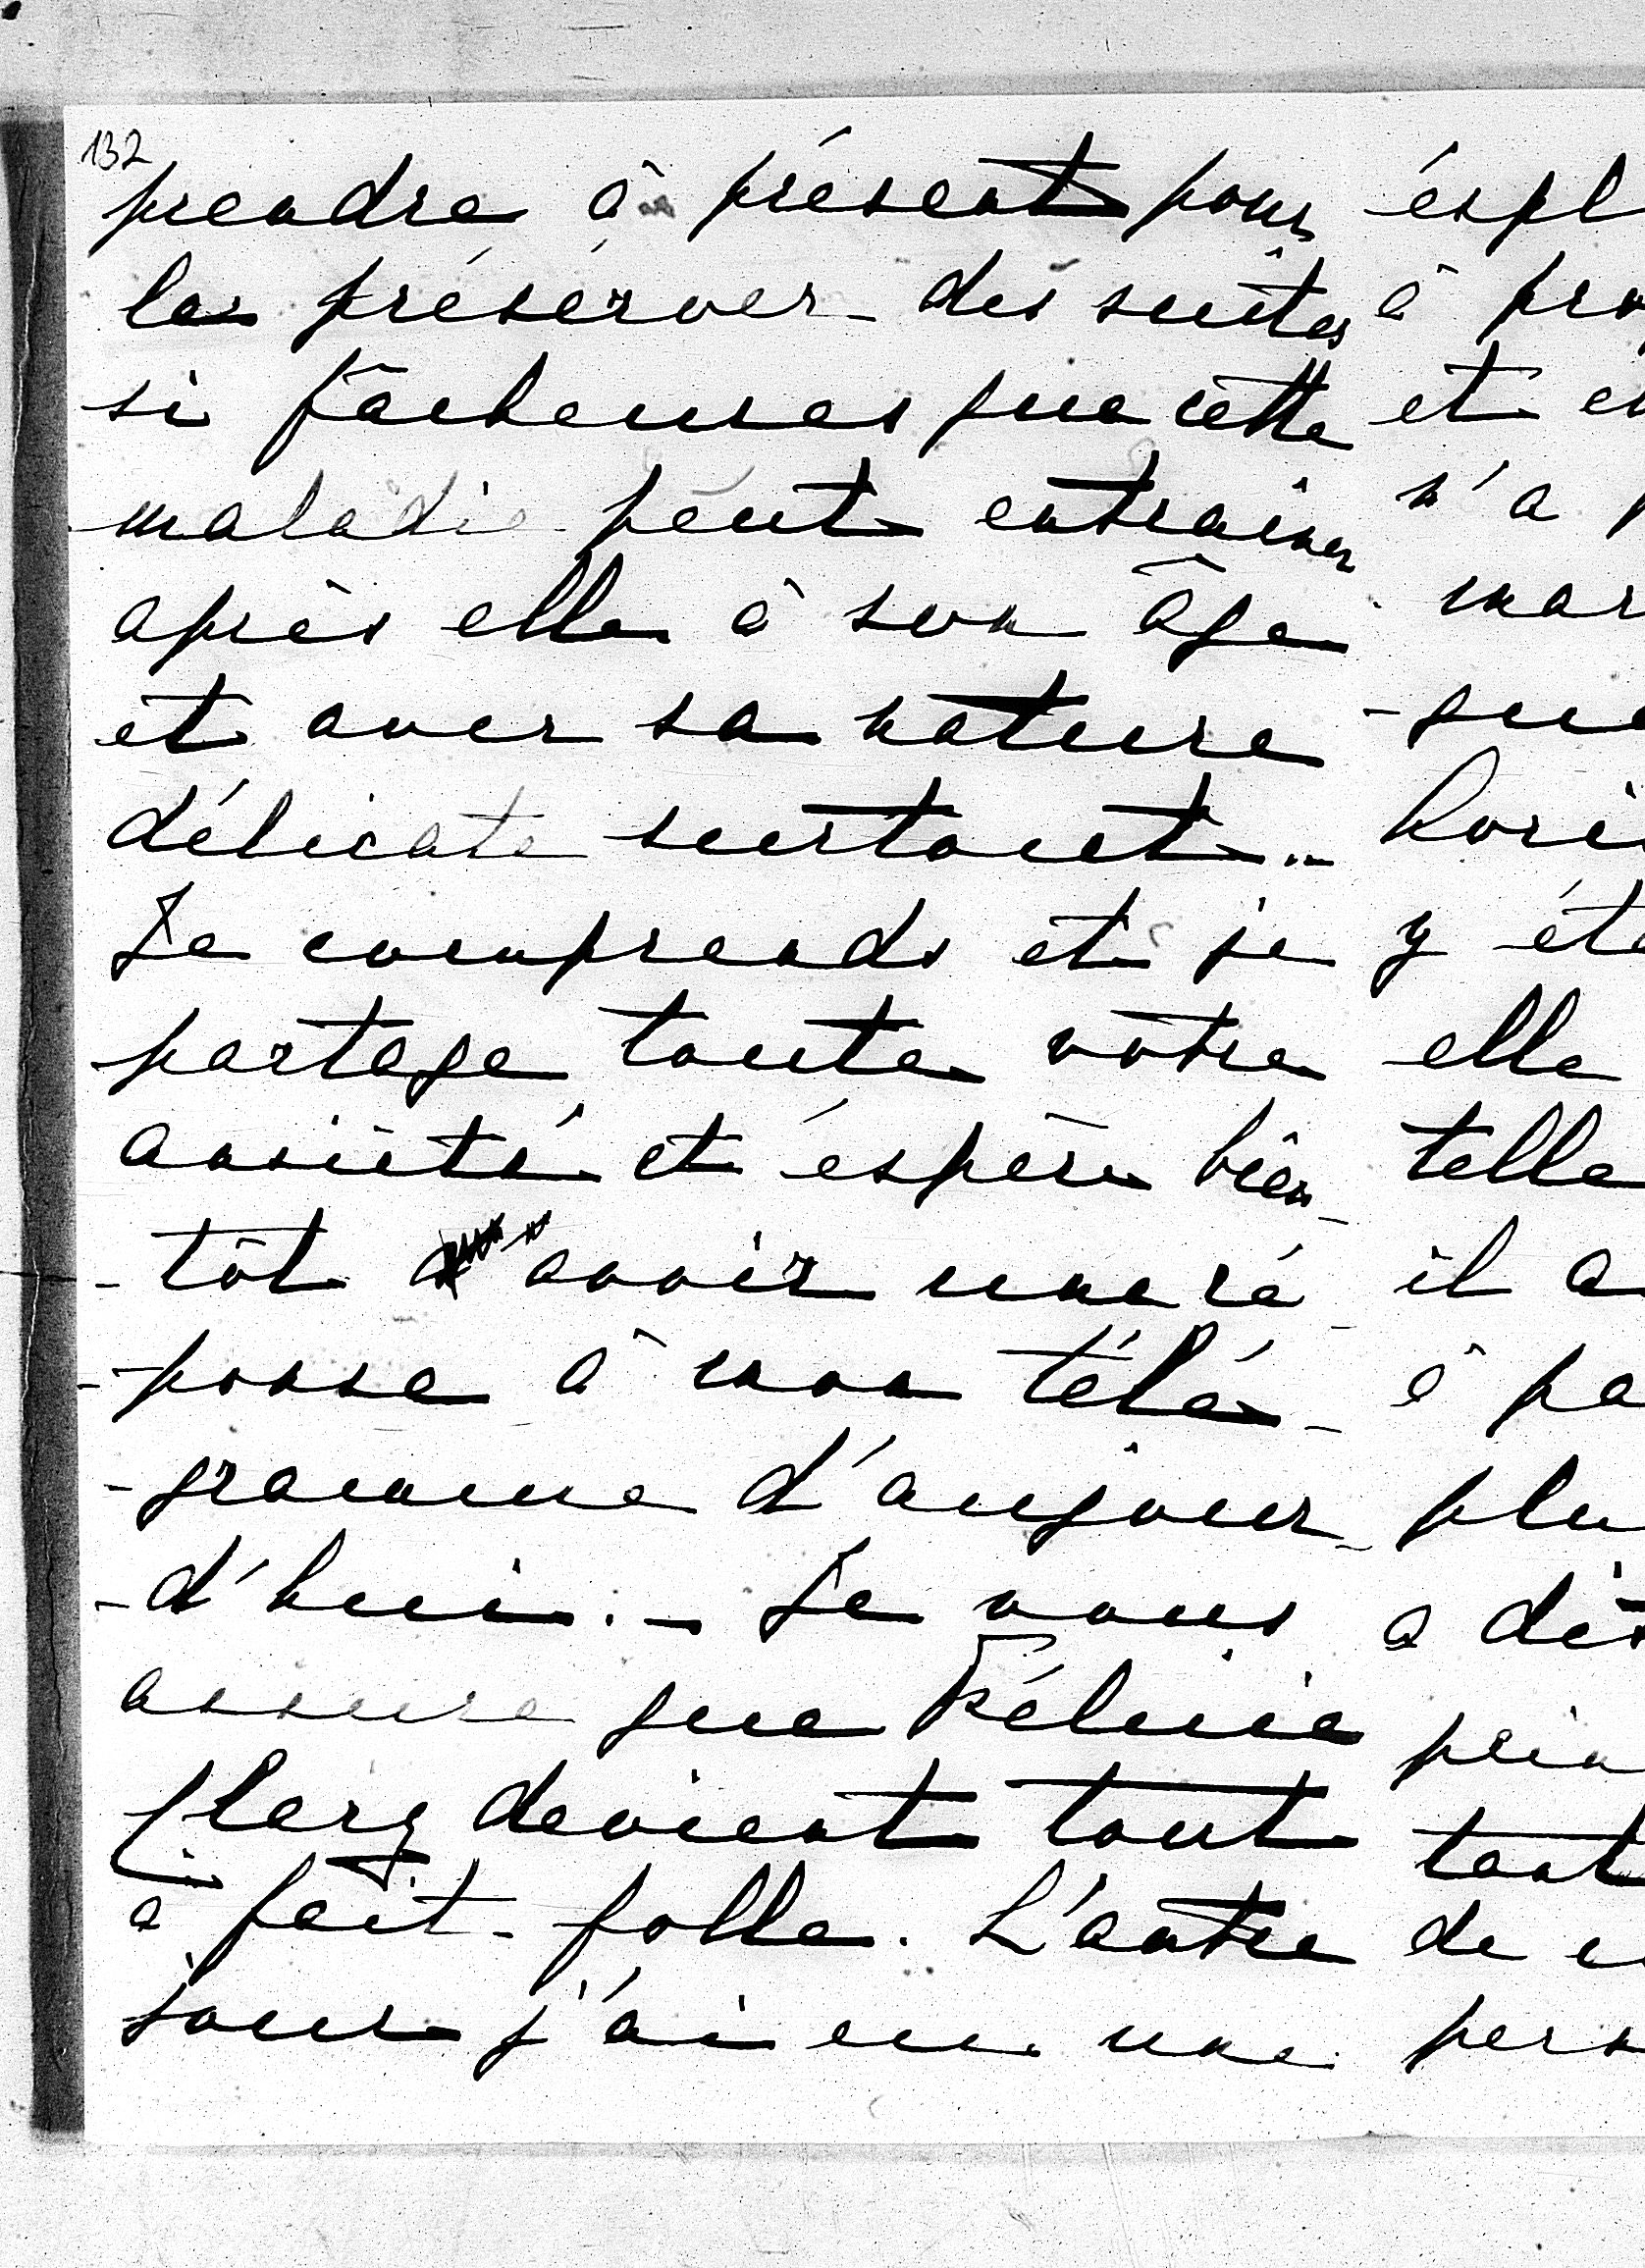 132
prendre à présent pour
les préserver des suites
si fâcheuses que cette
maladie peut entrainer
après elle à son âge
et avec sa nature
délicate surtout..
Je comprends et je
partage toute vôtre
anxiété et éspère bien-
-tôt avoir une ré-
-ponse à mon télé-
-gramme d'aujour-
-d'hui. - Je vous
assure que Félicie
devient tout
à fait folle. L'autre
jour j'ai eu une
éspl
à pro
et en
n'a p
mar
-que
hori
y éta
elle
telle
il a
à pa
plu
a dit
prin
tout
de
pers